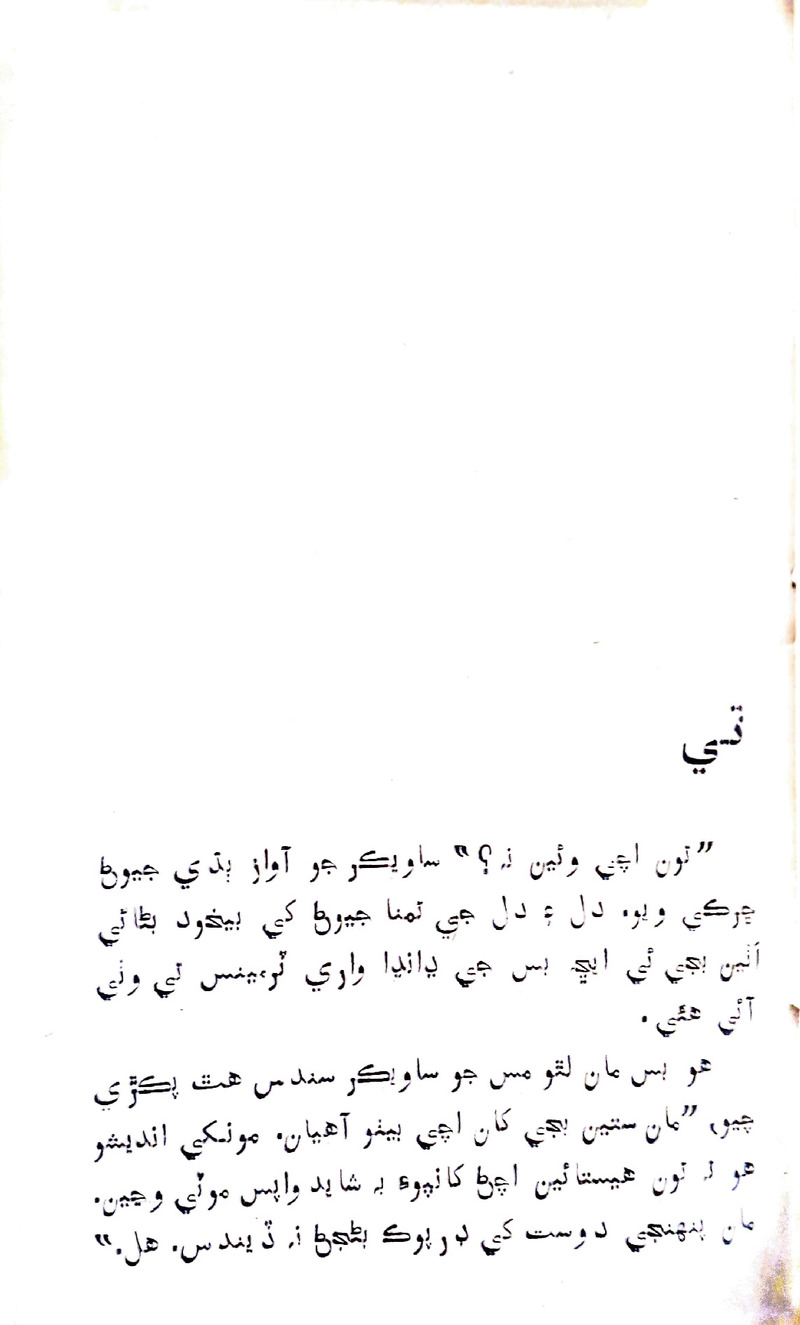 ٽـي
”تون اچي وئين نہ؟“ ساويڪر جو آواز ٻڌي جيوڻ
ڇرڪي ويو. دل ۽ دل جي تمنا جيوڻ کي بيخود بڻائي
اٺين بجي ئي ايڇ بس جي ڍانڍا واري ٽرمينس تي وٺي
آئي هئي.
هو بس مان لٿو مس جو ساويڪر سندس هٿ پڪڙي
چيو، ”مان ستين بجي کان اچي بيٺو آهيان. مونکي انديشو
هو تہ تون هيستائين اچڻ کانپوءِ بہ شايد واپس موٽي وڃين.
مان پنهنجي دوست کي ڊرپوڪ بڻجڻ نہ ڏيندس. هل.“